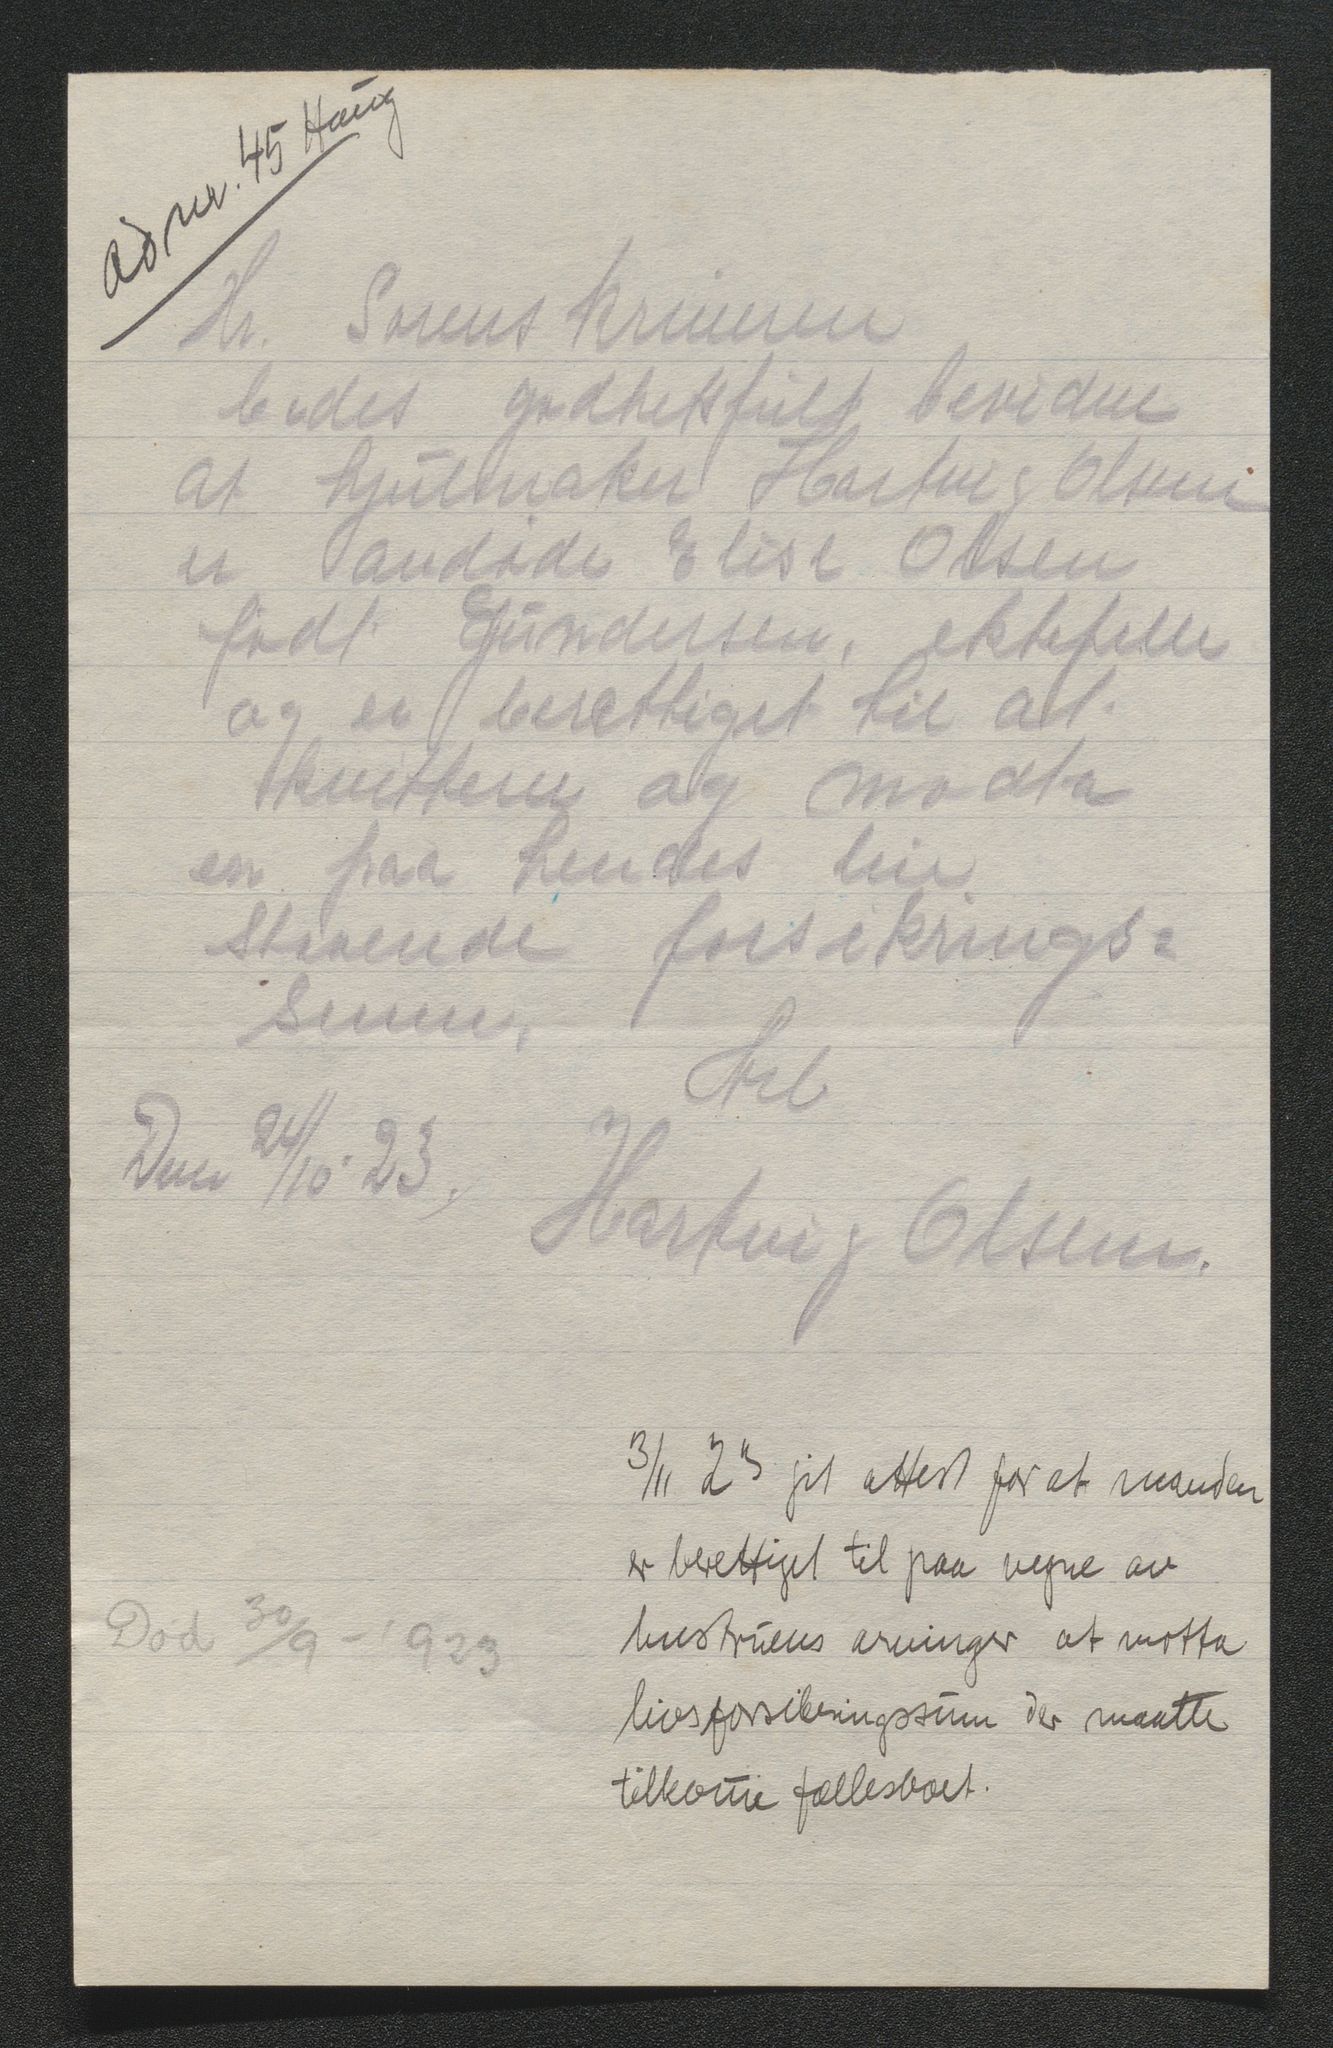 ad nr. 45 Haug
Hr. Sorenskriveren
bedes godhetsfult bevidne
at hjulmaker Hartvig Olsen
er avdøde Elise Olsen
født Gundersen, ektefelle
og er berettiget til at
kvittere og modta
en paa hendes liv
staaende forsikrings=
sum.
Den 24/10 23.
Hartvig Olsen.
3/11 23 git attest for at manden
er berettiget til paa vegne av
hustruens arvinger at motta
livsforsikringssum der maatte
tilkomme fællesboet.
Død 30/9 - 1923